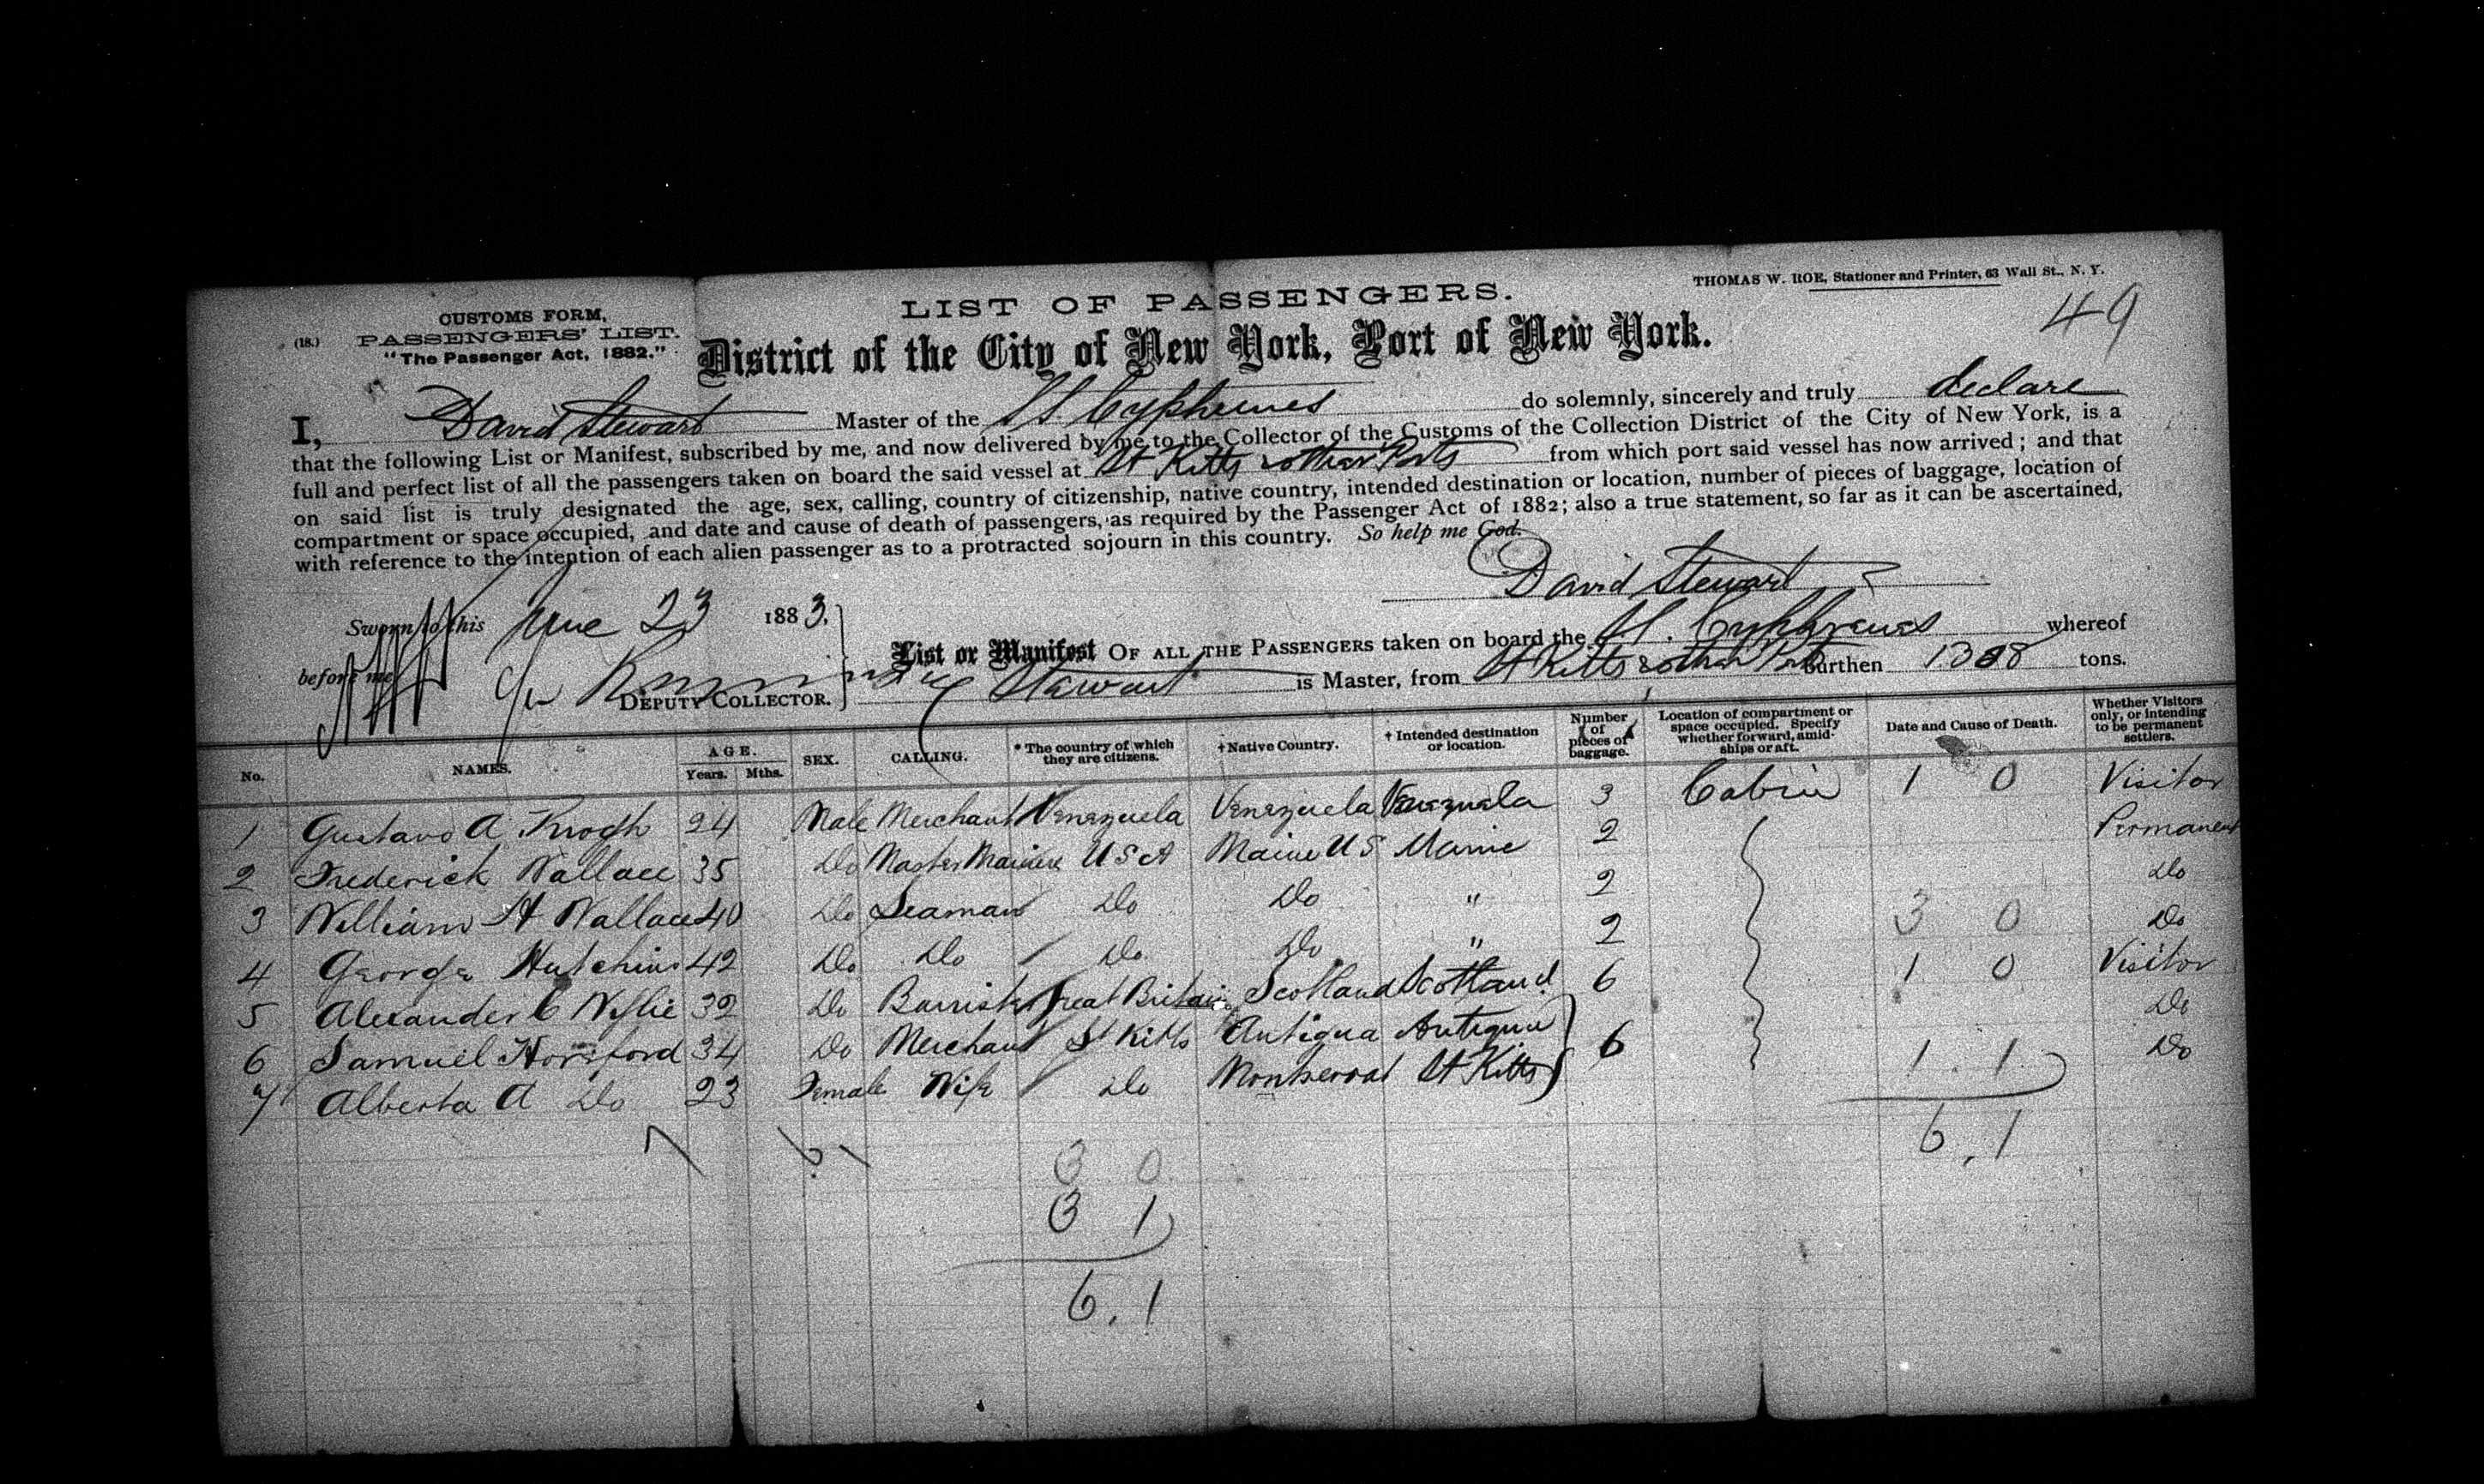 THOMAS W. ROE, Stationer and Printer, 63 Wall St., N. Y.
49
(18.)
CUSTOMS FORM,
PASSENGERS' LIST.
"The Passenger Act, 1882."
LIST OF PASSENGERS.
District of the City of New York, Port of New York.
I, David Stewart Master of the SS do solemnly, sincerely and truly declare
that the following List or Manifest, subscribed by me, and now delivered by me to the Collector of the Customs of the Collection District of the City of New York, is a
full and perfect list of all the passengers taken on board the said vessel at St Kitts & other Ports from which port said vessel has now arrived; and that
on said list is truly designated the age, sex, calling, country of citizenship, native country, intended destination or location, number of pieces of baggage, location of
compartment or space occupied, and date and cause of death of passengers, as required by the Passenger Act of 1882; also a true statement, so far as it can be ascertained,
with reference to the intention of each alien passenger as to a protracted sojourn in this country. So help me God.
David Stewart
Sworn to this June 23 1883,
before me
DEPUTY COLLECTOR.
List or Manifest OF ALL THE PASSENGERS taken on board the whereof
Stewart is Master, from St Kitts & other Ports burthen 1308 tons.
No. NAMES. AGE. Years. Mths. SEX. CALLING. * The country of which they are citizens. † Native Country. † Intended destination or location. Number of pieces of baggage. Location of compartment or space occupied. Specify whether forward, amidships or aft. Date and Cause of Death. Whether Visitors only, or intending to be permanent settlers.
1 Gustavo A Krogh 24 Male Merchant Venezuela Venezuela Venezuela 3 Cabin 1 0 Visitor
2 Frederick Wallace 35 Do Master Mariner USA Maine US Maine 2 Permanent
3 William H Wallace 40 Do Seaman Do Do " 2 Do
4 George Hutchins 42 Do Do Do Do " 2 3 0 Do
5 Alexander C 32 Do Barrister Great Britain Scotland Scotland 6 1 0 Visitor
6 Samuel Horsford 34 Do Merchant St Kitts Antigua Antigua 6 Do
7 Alberta A Do 23 Female Wife Do Montserrat St Kitts 1 . 1 Do
7 6 1
6 . 1
3 0
3 1
6 . 1